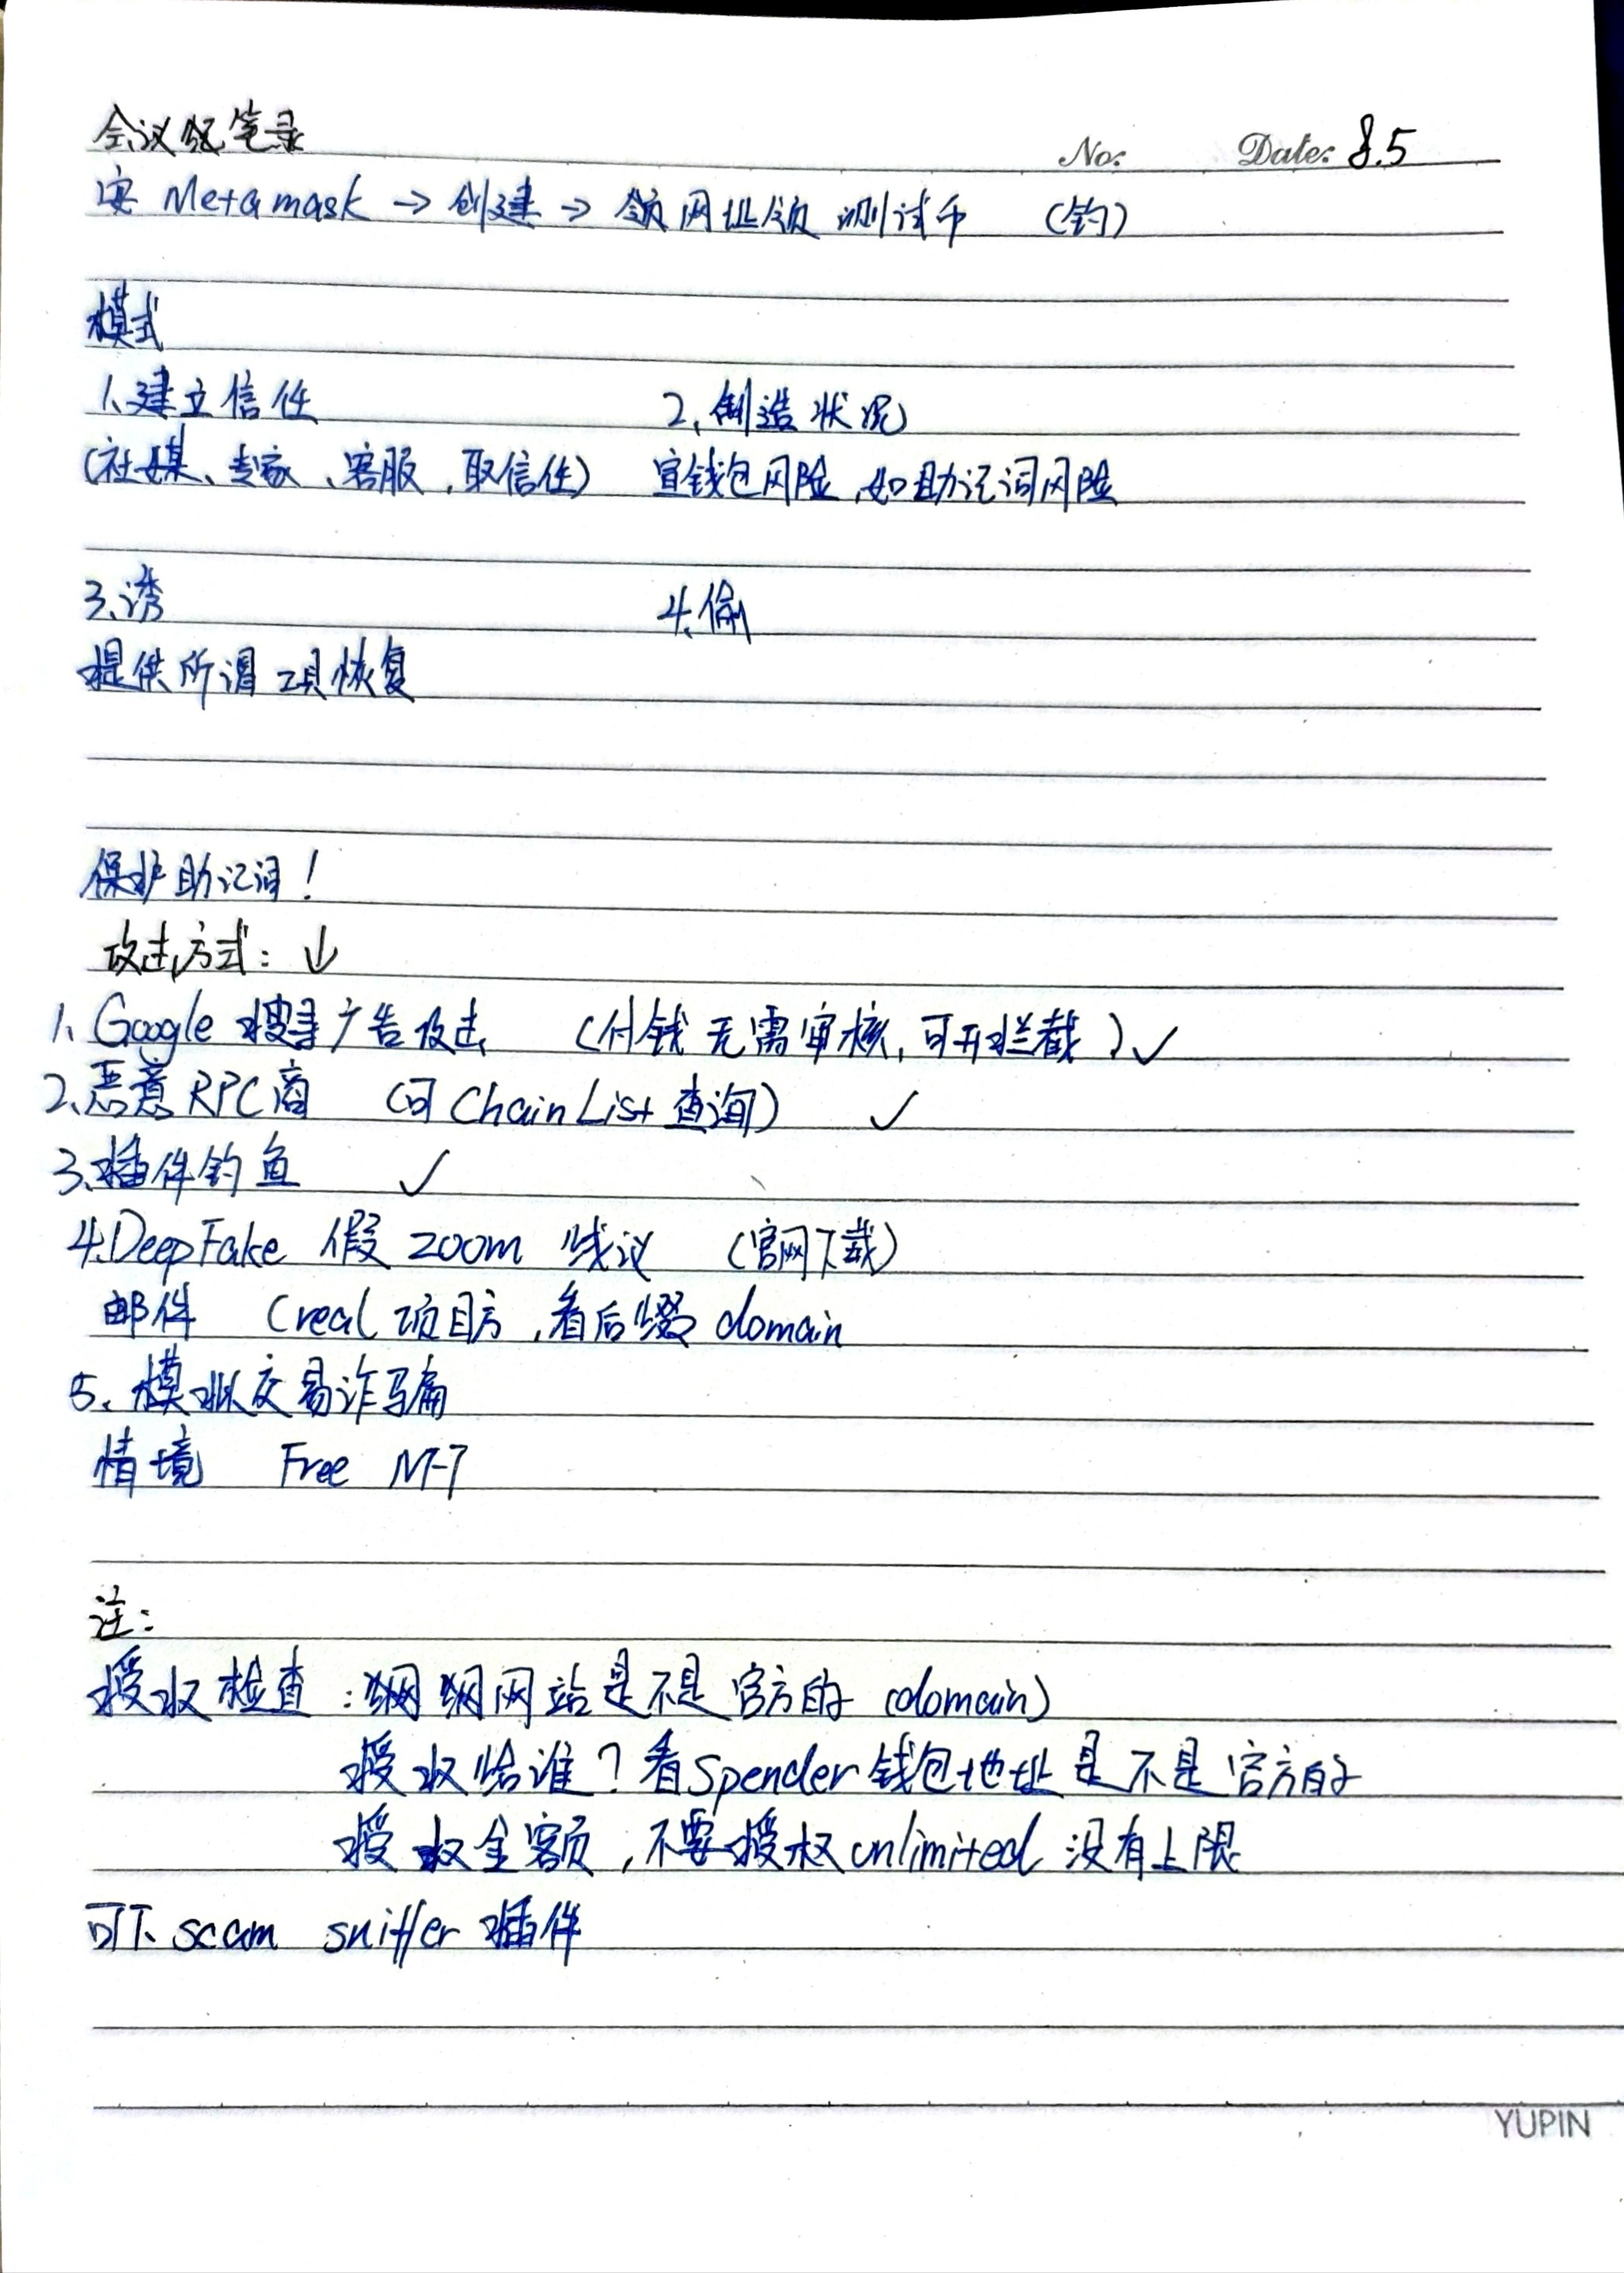 会议纪笔录 No: Date: 8.5
安 Metamask → 创建 → 领网址领 测试币 (钓)
模式
1、建立信任 2、制造状况
(社媒、专家、客服，取信任) 宣钱包风险，如助记词风险
3、诱 4、偷
提供所谓工具恢复
保护助记词！
攻击方式：↓
1、Google 搜寻广告攻击 (付钱无需审核，可开拦截) ✓
2、恶意RPC商 (可 ChainList 查询) ✓
3、插件钓鱼 ✓
4.DeepFake 假 zoom 线议 (官网下载)
邮件 (real 项目方，看后缀 domain
5、模拟交易诈骗
情境 Free NFT
注：
授权检查：网站是不是官方的 (domain)
授权给谁？看Spender 钱包地址是不是官方的
授权金额，不要授权 unlimited 没有上限
可下 scam sniffer 插件
YUPIN